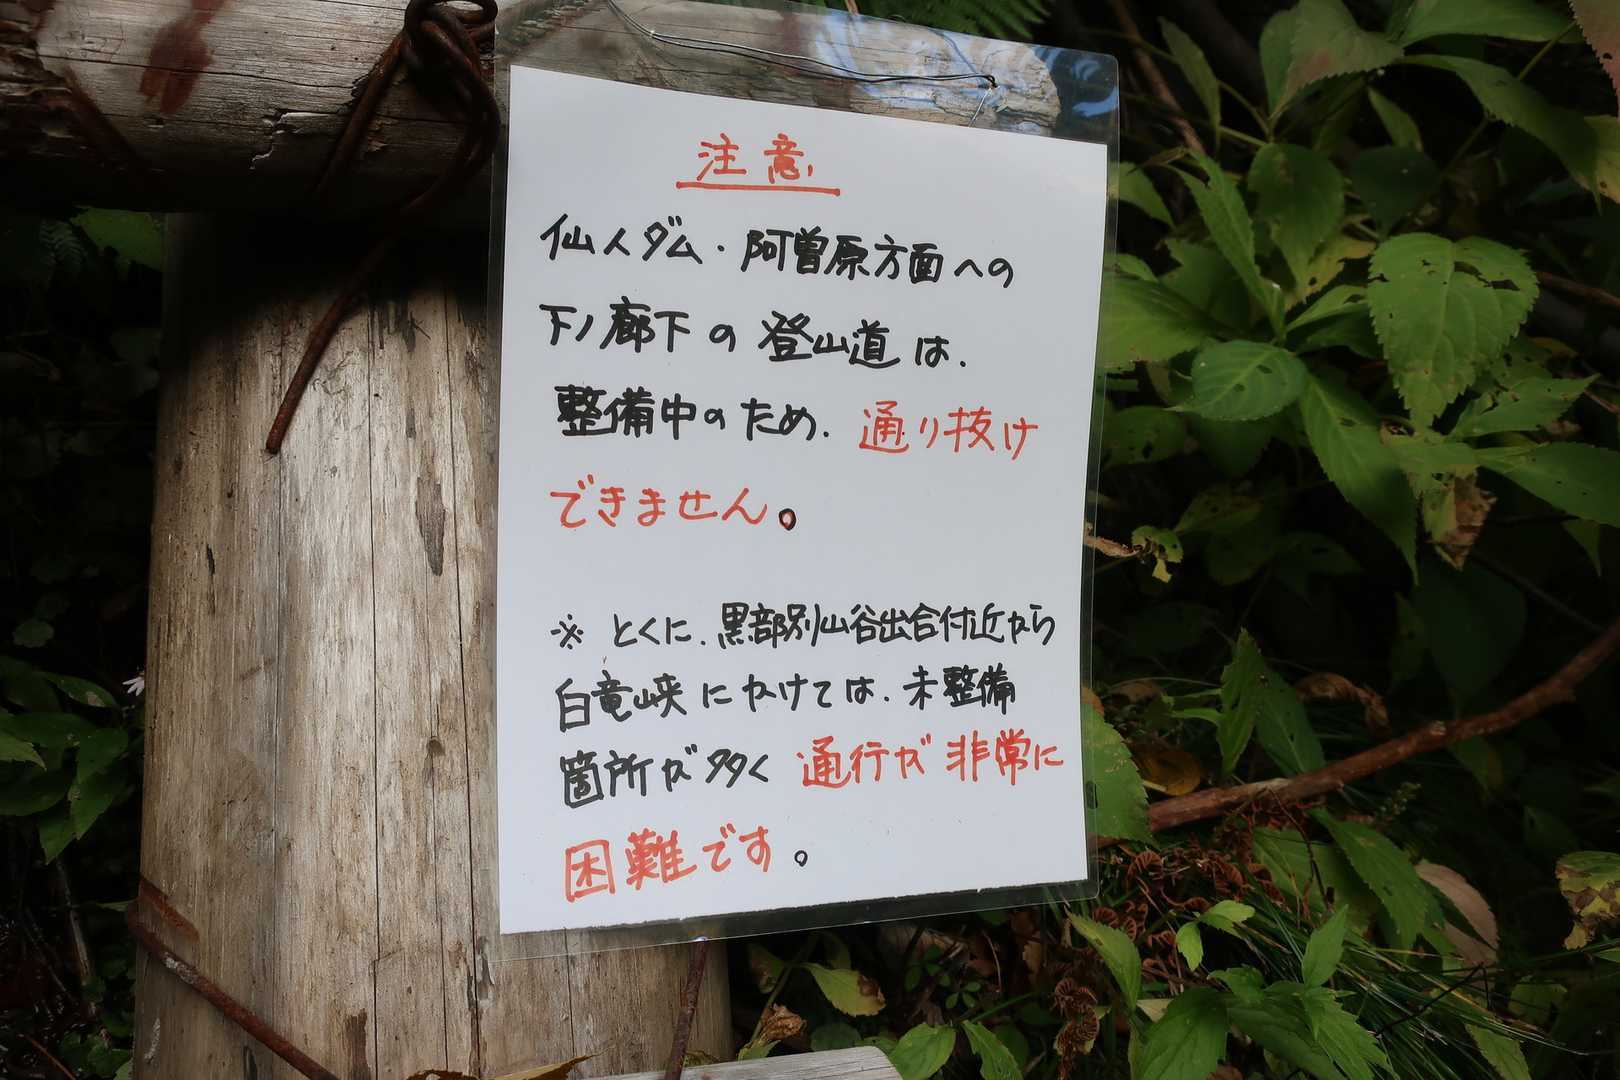 注意
仙人ダム・阿曽原方面への
下ノ廊下の登山道は、
整備中のため、通り抜け
できません。
※とくに、黒部別山谷出合付近から
白竜峡にかけては、未整備
箇所が多く通行が非常に
困難です。